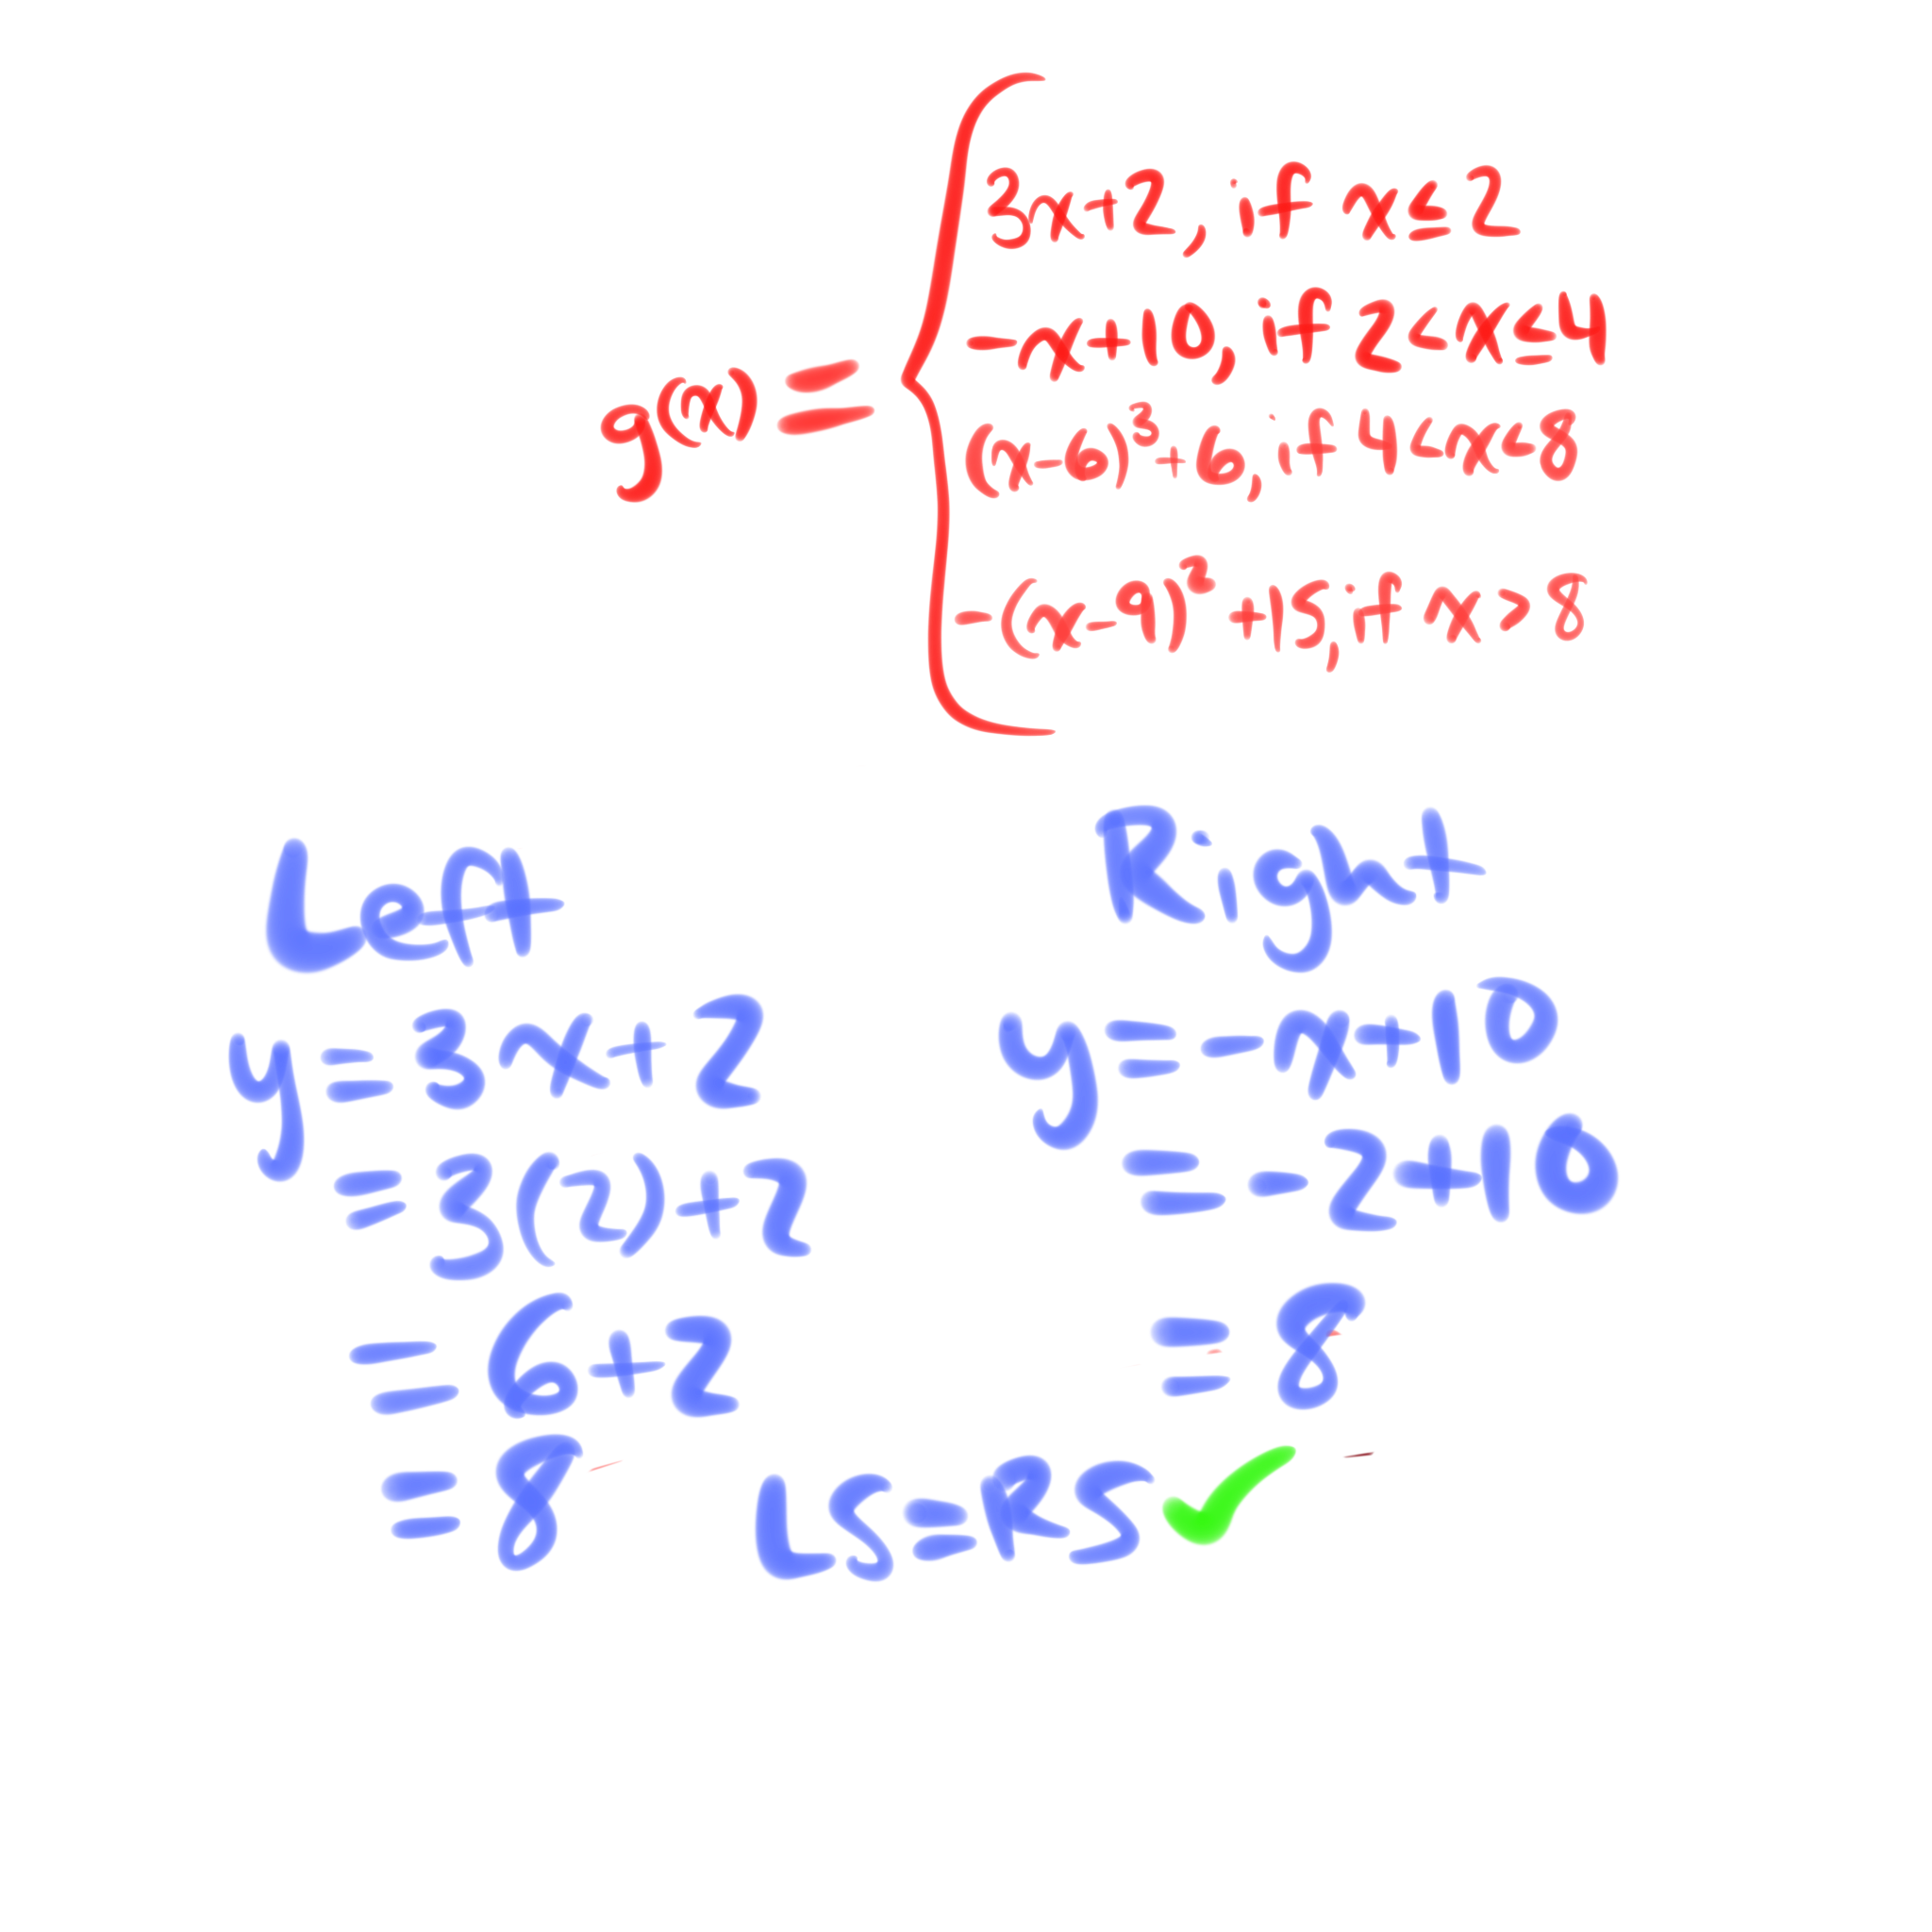 g(x) = {
3x+2, if x≤2
-x+10, if 2<x≤4
(x-6)³+6, if 4<x<8
-(x-9)²+15, if x>8
Left
y=3x+2
=3(2)+2
=6+2
=8
Right
y=-x+10
=-2+10
=8
LS=RS ✓